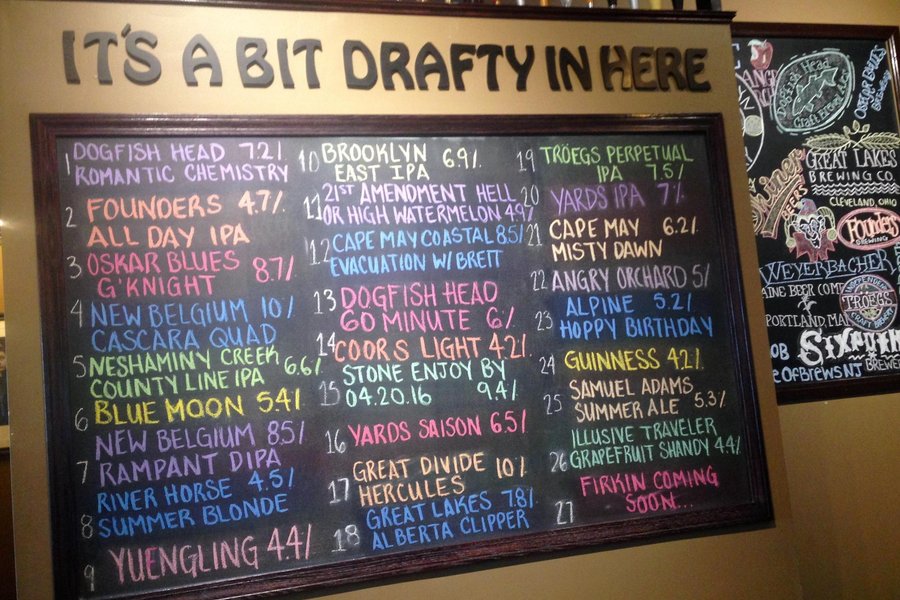 IT'S A BIT DRAFTY IN HERE
1 DOGFISH HEAD 7.2%
ROMANTIC CHEMISTRY
2 FOUNDERS 4.7%
ALL DAY IPA
3 OSKAR BLUES
G'KNIGHT 8.7%
4 NEW BELGIUM 10%
CASCARA QUAD
5 NESHAMINY CREEK
COUNTY LINE IPA 6.6%
6 BLUE MOON 5.4%
7 NEW BELGIUM 8.5%
RAMPANT DIPA
8 RIVER HORSE 4.5%
SUMMER BLONDE
9 YUENGLING 4.4%
10 BROOKLYN
EAST IPA 6.9%
11 21ST AMENDMENT HELL
OR HIGH WATERMELON 4.9%
12 CAPE MAY COASTAL 8.5%
EVACUATION W/ BRETT
13 DOGFISH HEAD
60 MINUTE 6%
14 COORS LIGHT 4.2%
15 STONE ENJOY BY
04.20.16 9.4%
16 YARDS SAISON 6.5%
17 GREAT DIVIDE
HERCULES 10%
18 GREAT LAKES 7.8%
ALBERTA CLIPPER
19 TRÖEGS PERPETUAL
IPA 7.5%
20 YARDS IPA 7%
21 CAPE MAY 6.2%
MISTY DAWN
22 ANGRY ORCHARD 5%
23 ALPINE 5.2%
HOPPY BIRTHDAY
24 GUINNESS 4.2%
25 SAMUEL ADAMS
SUMMER ALE 5.3%
26 ILLUSIVE TRAVELER
GRAPEFRUIT SHANDY 4.4%
27 FIRKIN COMING
SOON...
Dogfish Head
Craft Brewed Ales
OSKAR BLUES
GREAT LAKES
BREWING CO.
CLEVELAND, OHIO
FOUNDERS
BREWING
WEYERBACHER
BEER COMP
PORTLAND, MA
TRÖEGS
CRAFT BREWERY
SIXPOIN
BREWE